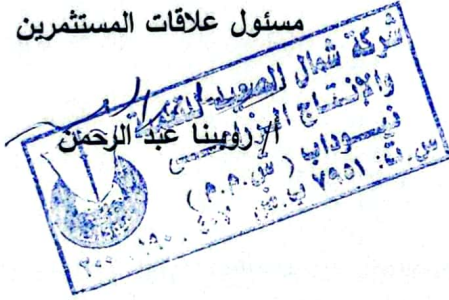 مسئول علاقات المستثمرين
أ/ روبينا عبد الرحمن
شركة شمال الصعيد للتنمية
والإنتاج الزراعى
نيوداب (ش.م.م)
س.ت: ٧٩٥١